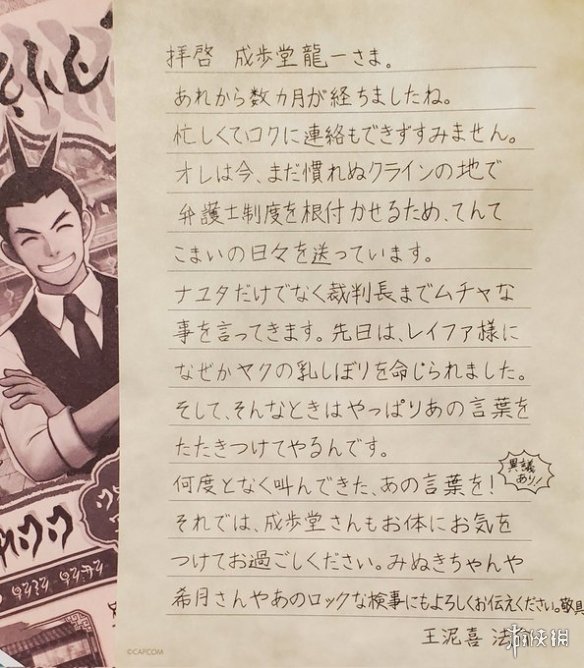 拝啓 成歩堂龍一さま。
あれから数カ月が経ちましたね。
忙しくてロクに連絡もできずすみません。
オレは今、まだ慣れぬクラインの地で
弁護士制度を根付かせるため、てんて
こまいの日々を送っています。
ナユタだけでなく裁判長までムチャな
事を言ってきます。先日は、レイファ様に
なぜかヤクの乳しぼりを命じられました。
そして、そんなときはやっぱりあの言葉を
たたきつけてやるんです。
何度となく叫んできた、あの言葉を!
異議
あり!
それでは、成歩堂さんもお体にお気を
つけてお過ごしください。みぬきちゃんや
希月さんやあのロックな検事にもよろしくお伝えください。敬具
王泥喜 法
©CAPCOM